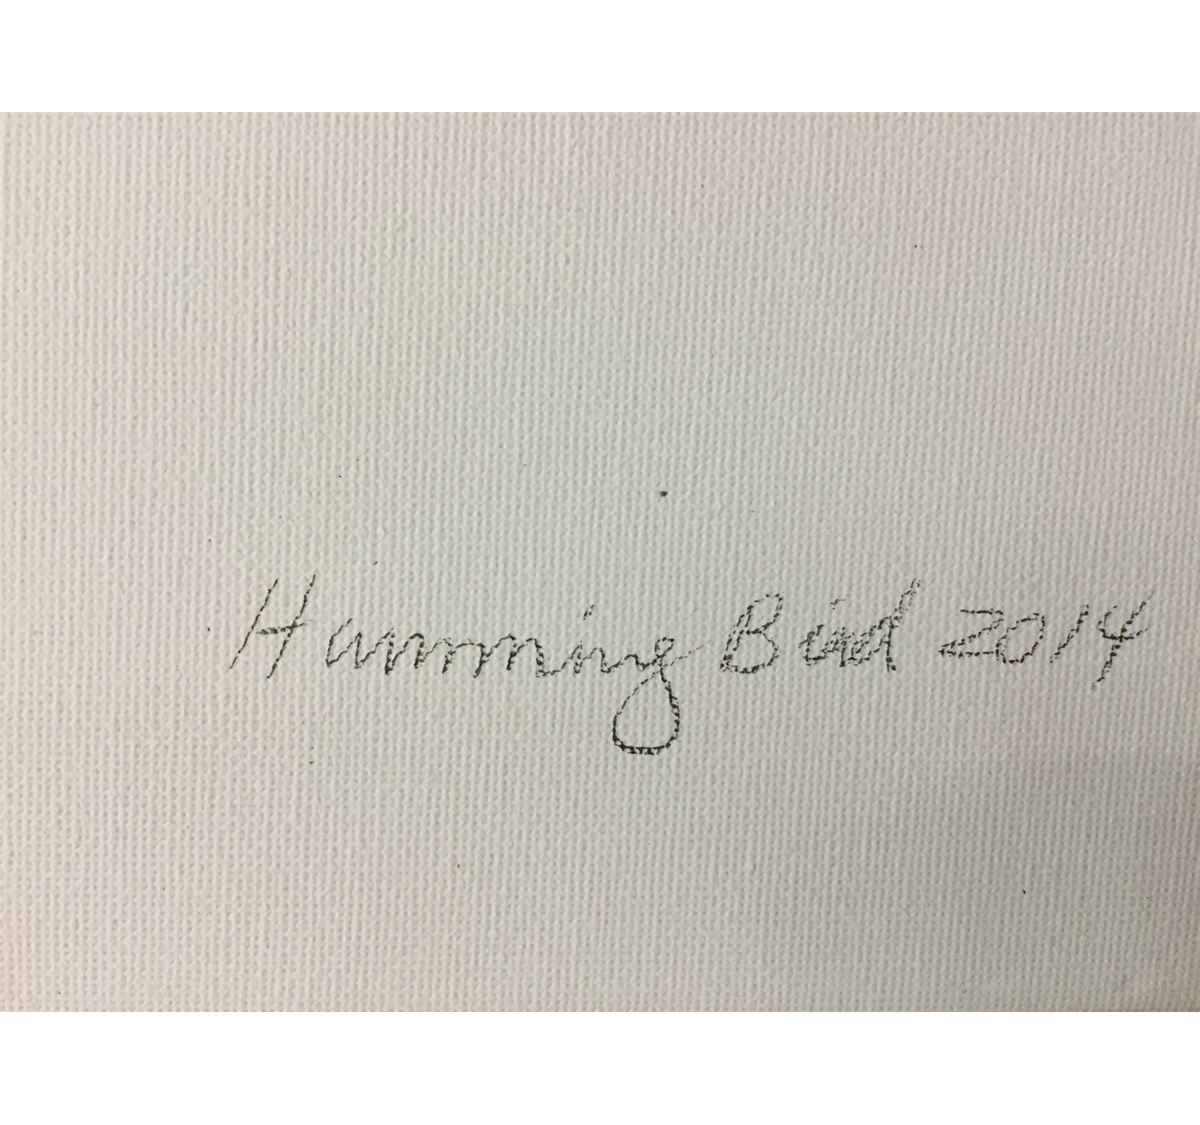 Humming Bird 2014